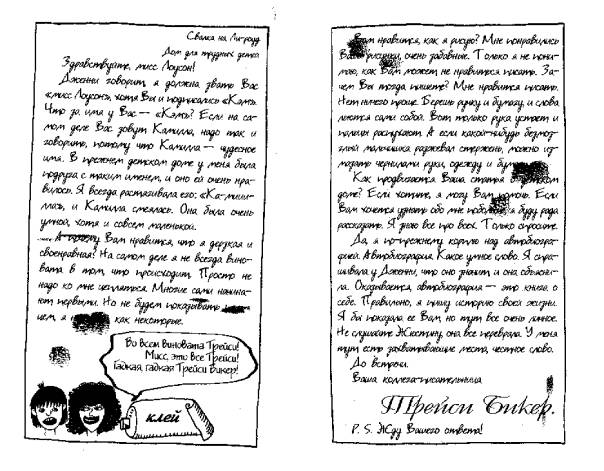 Свалка на Лигроуд
Дом для трудных детей
Здравствуйте, мисс Лоусон!
Дженни говорит, я должна звать Вас
«мисс Лоусон», хотя Вы и подписались «Кэм».
Что за имя у Вас — «Кэм»? Если на са-
мом деле Вас зовут Камилла, надо так и
говорить, потому что Камилла — чудесное
имя. В прежнем детском доме у меня была
подруга с таким именем, и оно ей очень нра-
вилось. Я всегда растягивала его: «Ка-мии-
лла», и Камилла смеялась. Она была очень
умной, хотя и совсем маленькой.
А почему Вам нравится, что я дерзкая и
своенравная? На самом деле я не всегда вино-
вата в том, что происходит. Просто не
надо ко мне цепляться. Многие сами начина-
ют первыми. Но не будем показывать
чем, я н как некоторые.
Во всем виновата Трейси!
Мисс, это все Трейси!
Гадкая, гадкая Трейси Бикер!
клей
Вам нравится, как я рисую? Мне понравились
Ваши рисунки, очень забавные. Только я не пони-
маю, как Вам может не нравиться писать. За-
чем Вы тогда пишете? Мне нравится писать.
Нет ничего проще. Берешь ручку и бумагу, и слова
льются сами собой. Вот только рука устает и
пальцы распухают. А если какой-нибудь безмоз-
глый мальчишка разжевал стержень, можно из-
мазать чернилами руки, одежду и бумагу.
Как продвигается Ваша статья о детском
доме? Если хотите, я могу Вам помочь. Если
Вам хочется узнать обо мне побольше, я буду рада
рассказать. Я знаю все про всех. Только спросите.
Да, я по-прежнему корплю над автобиогра-
фией. Автобиография. Какое умное слово. Я спра-
шивала у Дженни, что оно значит, и она объясни-
ла. Оказывается, автобиография — это книга о
себе. Правильно, я пишу историю своей жизни.
Я бы показала ее Вам, но тут все очень личное.
Не слушайте Жюстину, она все переврала. У меня
тут есть захватывающие места, честное слово.
До встречи.
Ваша коллега-писательница
Трейси Бикер.
P. S. Жду Вашего ответа!